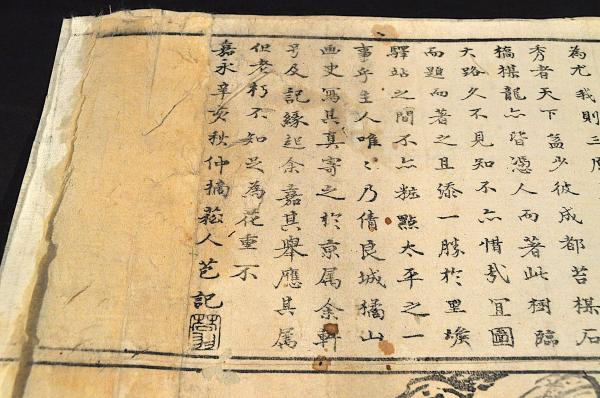 為尤我則三
秀者天下蓋少彼成都苔楳石
楳龍亦皆憑人而著此樹臨
大路久不見知不亦惜哉冝圖
而題而著之且添一勝於里堠
驛站之間不亦粧點太平之一
事乎主人唯〻乃倩良城橘山
画史寫其真寄之於京属余軒
号及記縁起余嘉其舉應其属
但老朽不知足為花重不
嘉永辛亥秋仲 菘人芭記